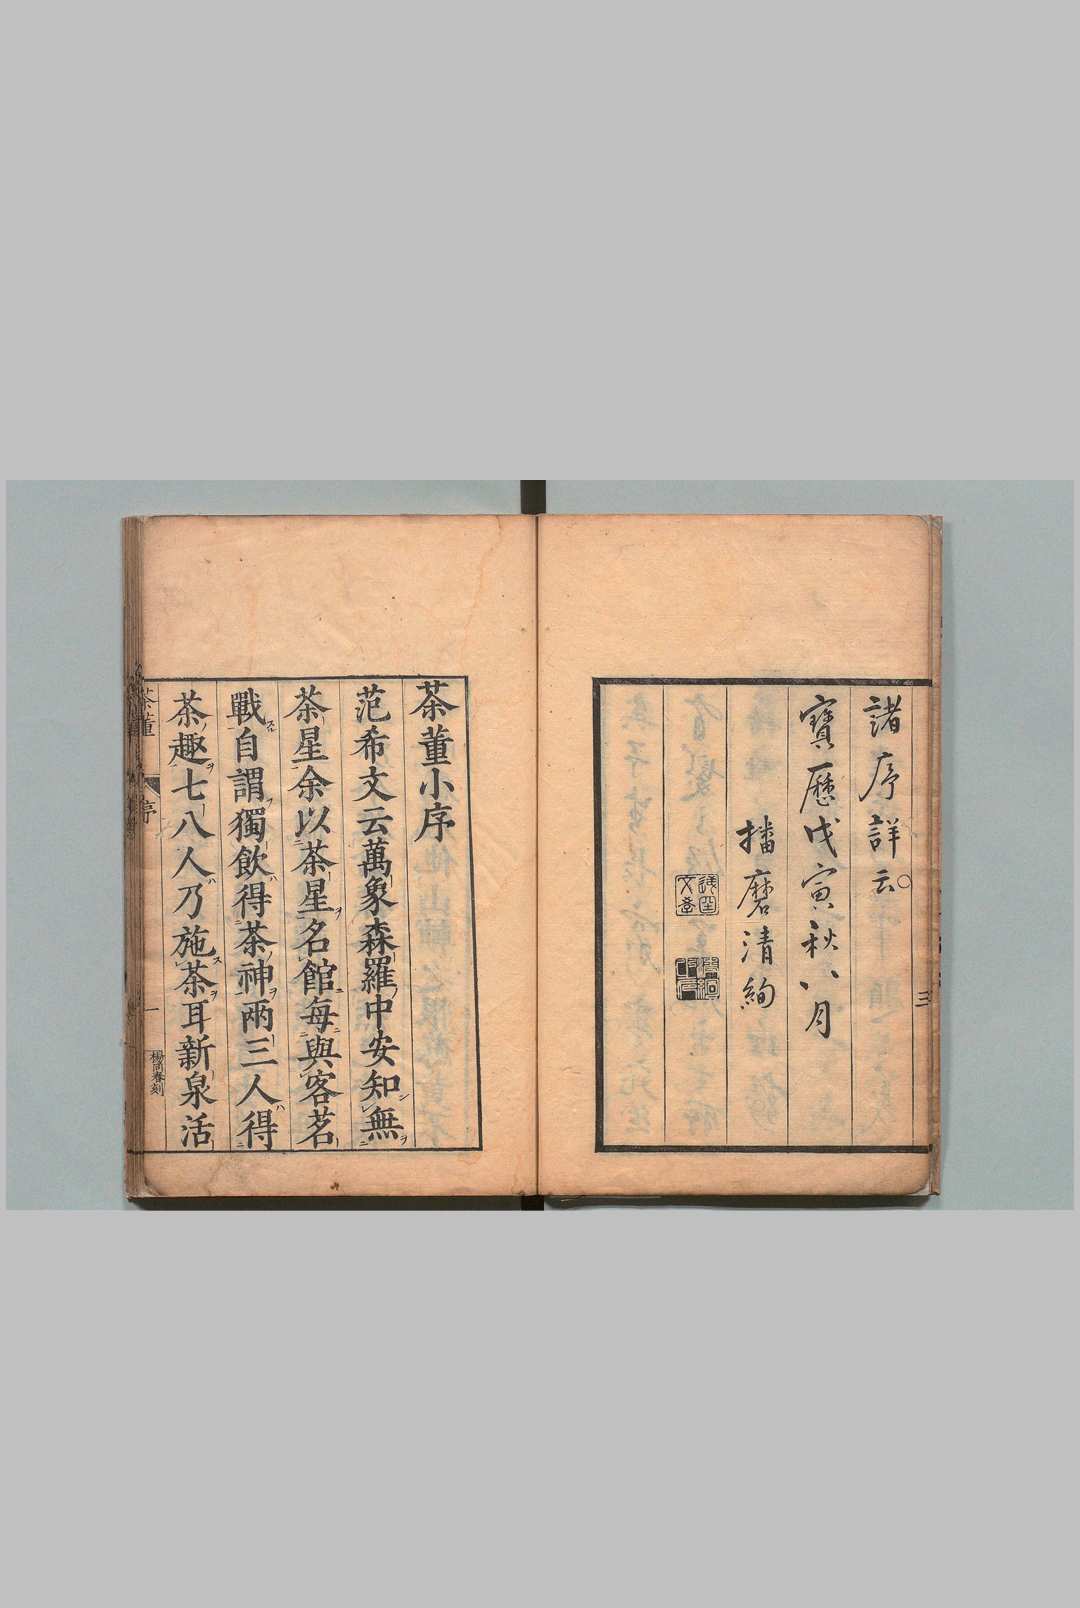 諸序詳云
寶曆戊寅秋八月
播磨清絢
三
茶董小序
范希文云萬象森羅中安知無
茶星余以茶星名館每與客茗
戰自謂獨飲得茶神兩三人得
茶趣七八人乃施茶耳新泉活
茶董
序
一
楊尚春刻